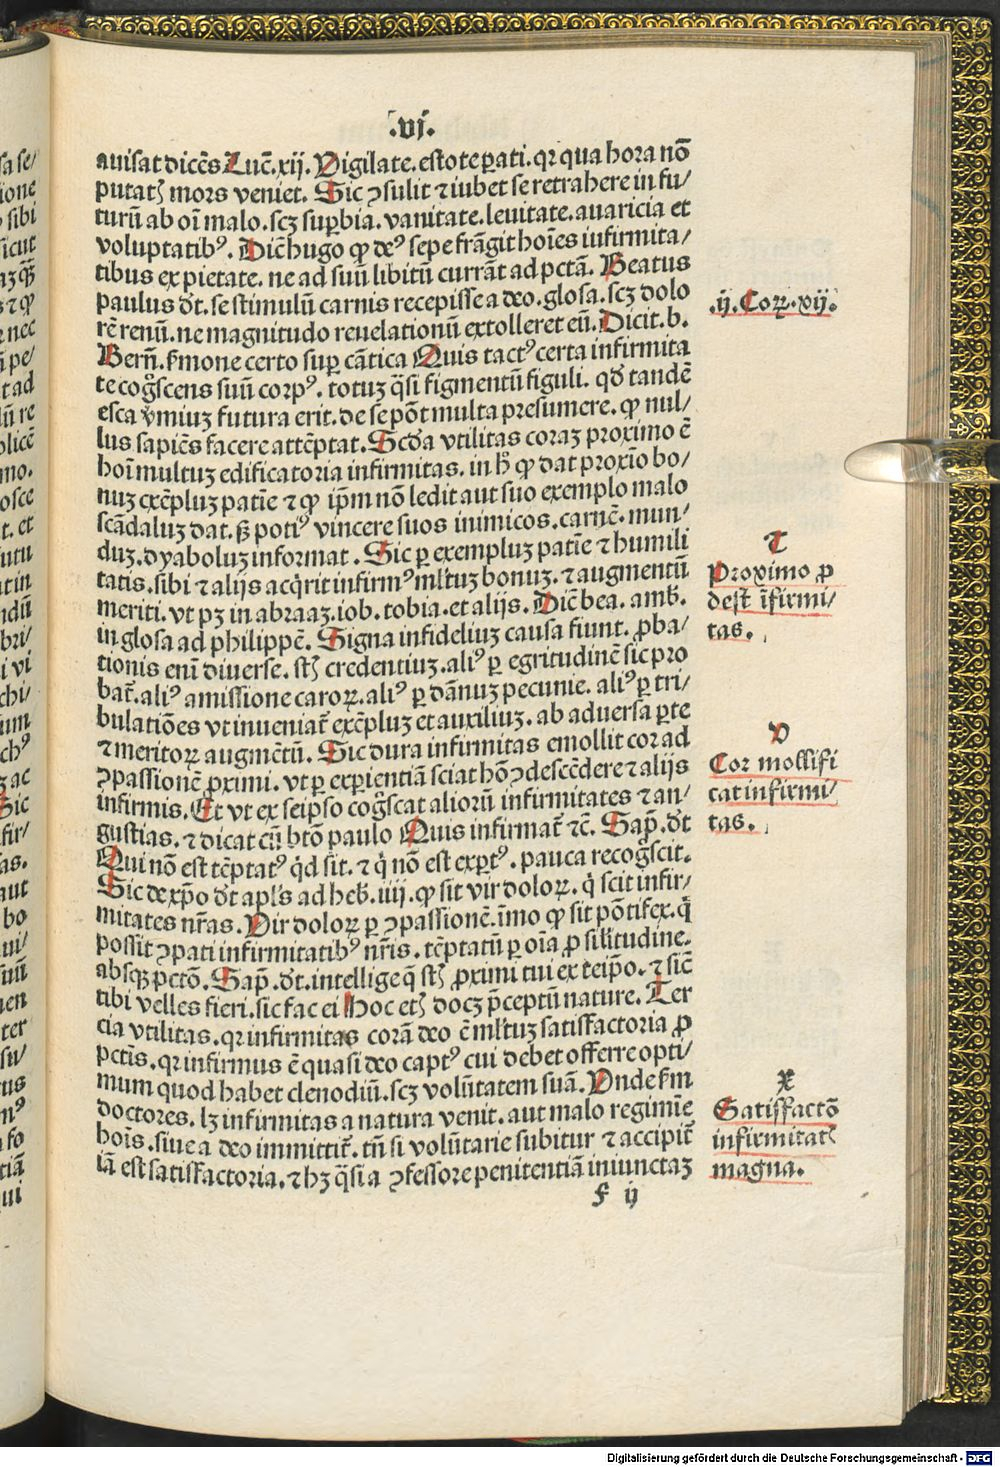 .vi.
auisat dicēs Luc̄.xij. Vigilate. estote ꝑati. qꝛ qua hora nō
putatꝭ mors veniet. Sic ꝯsulit ⁊ iubet se retrahere in fu/
turū ab oī malo. scꝫ suꝑbia. vanitate. leuitate. auaricia et
voluptatibꝰ. Dic̄ hugo ꝙ deꝰ sepe frāgit hoīes infirmita/
tibus ex pietate. ne ad suū libitū currāt ad pctā. Beatus
paulus dt̄. se stimulū carnis recepisse a deo. glosa. scꝫ dolo
rē renū. ne magnitudo reuelationū extolleret eū. Dicit. b.
Bern̄. ẜmone certo suꝑ cātica Quis tactꝰ certa infirmita
te cog̃scens suū corpꝰ. totuꝫ q̄si figmentū figuli. qd̄ tandē
esca v̓miuꝫ futura erit. de se pōt multa presumere. ꝙ nul/
lus sapiēs facere attēptat. Scd̄a vtilitas coraꝫ proximo ē
hoī multuꝫ edificatoria infirmitas. in hͦ ꝙ dat proxīo bo/
nuꝫ exēpluꝫ patīe ⁊ ꝙ ip̄m nō ledit aut suo exemplo malo
scādaluꝫ dat. sꝫ potiꝰ vincere suos inimicos. carnē. mun/
duꝫ. dyaboluꝫ informat. Sic ꝑ exempluꝫ patīe ⁊ humili
tatis. sibi ⁊ alijs acq̓rit infirmꝰ ml̓tuꝫ bonuꝫ. ⁊ augmentū
meriti. vt pꝫ in abraaꝫ. iob. tobia. et alijs. Dic̄ bea. amb̄.
in glosa ad philippē. Signa infideliuꝫ causa fiunt. ꝓba/
tionis eni diuerse. sꝫ credentiuꝫ. aliꝰ ꝑ egritudinē sic pro
bat̄. aliꝰ amissione caroꝝ. aliꝰ ꝑ dānuꝫ pecunie. aliꝰ ꝑ tri/
bulatiōes vt inueniat̄ exēpluꝫ et auxiliuꝫ. ab aduersa ꝑte
⁊ meritoꝝ augmētū. Sic dura infirmitas emollit cor ad
ꝯpassionē ꝓximi. vt ꝑ exꝑientiā sciat hō ꝯdescēdere ⁊ alijs
infirmis. Et vt ex seipso cog̃scat aliorū infirmitates ⁊ an/
gustias. ⁊ dicat cū bt̄o paulo Quis infirmat̄ ⁊c̄. Sap̄. dt̄
Qui nō est tēptatꝰ q̓d sit. ⁊ q̓ nō est exꝑtꝰ. pauca recog̃scit.
Sic de xp̄o dt̄ apl̓s ad heb̄. iiij. ꝙ sit vir doloꝝ. q̓ scit infir/
mitates nr̄as. Vir doloꝝ ꝑ ꝯpassionē. īmo ꝙ sit pōtifex. q̓
possit ꝯpati infirmitatibꝰ nr̄is. tēptatū ꝑ oīa ꝓ sil̓itudine.
absqꝫ pctō. Sap̄. dt̄. intellige q̄ sꝫ ꝓximi tui ex teip̄o. ⁊ sic̄
tibi velles fieri. sic fac ei Hoc etꝭ docꝫ p̄ceptū nature. Ter
cia vtilitas. qꝛ infirmitas corā deo ē ml̓tuꝫ satisfactoria ꝓ
pctīs. qꝛ infirmus ē quasi deo captꝰ cui debet offerre opti/
mum quod habet clenodiū. scꝫ volūtatem suā. Vnde ẜm
doctores. lꝫ infirmitas a natura venit. aut malo regimīe
hoīs. siue a deo immittit̄. tn̄ si volūtarie subitur ⁊ accipit̄
iā est satisfactoria. ⁊ hꝫ q̄si a ꝯfessore penitentiā iniunctaꝫ
f ij
.ij. Coꝝ. xij.
T
Proximo ꝓ
dest īfirmi/
tas.
V
Cor mollifi
cat infirmi/
tas.
X
Satisfactō
infirmitatꝭ
magna.
Digitalisierung gefördert durch die Deutsche Forschungsgemeinschaft - DFG